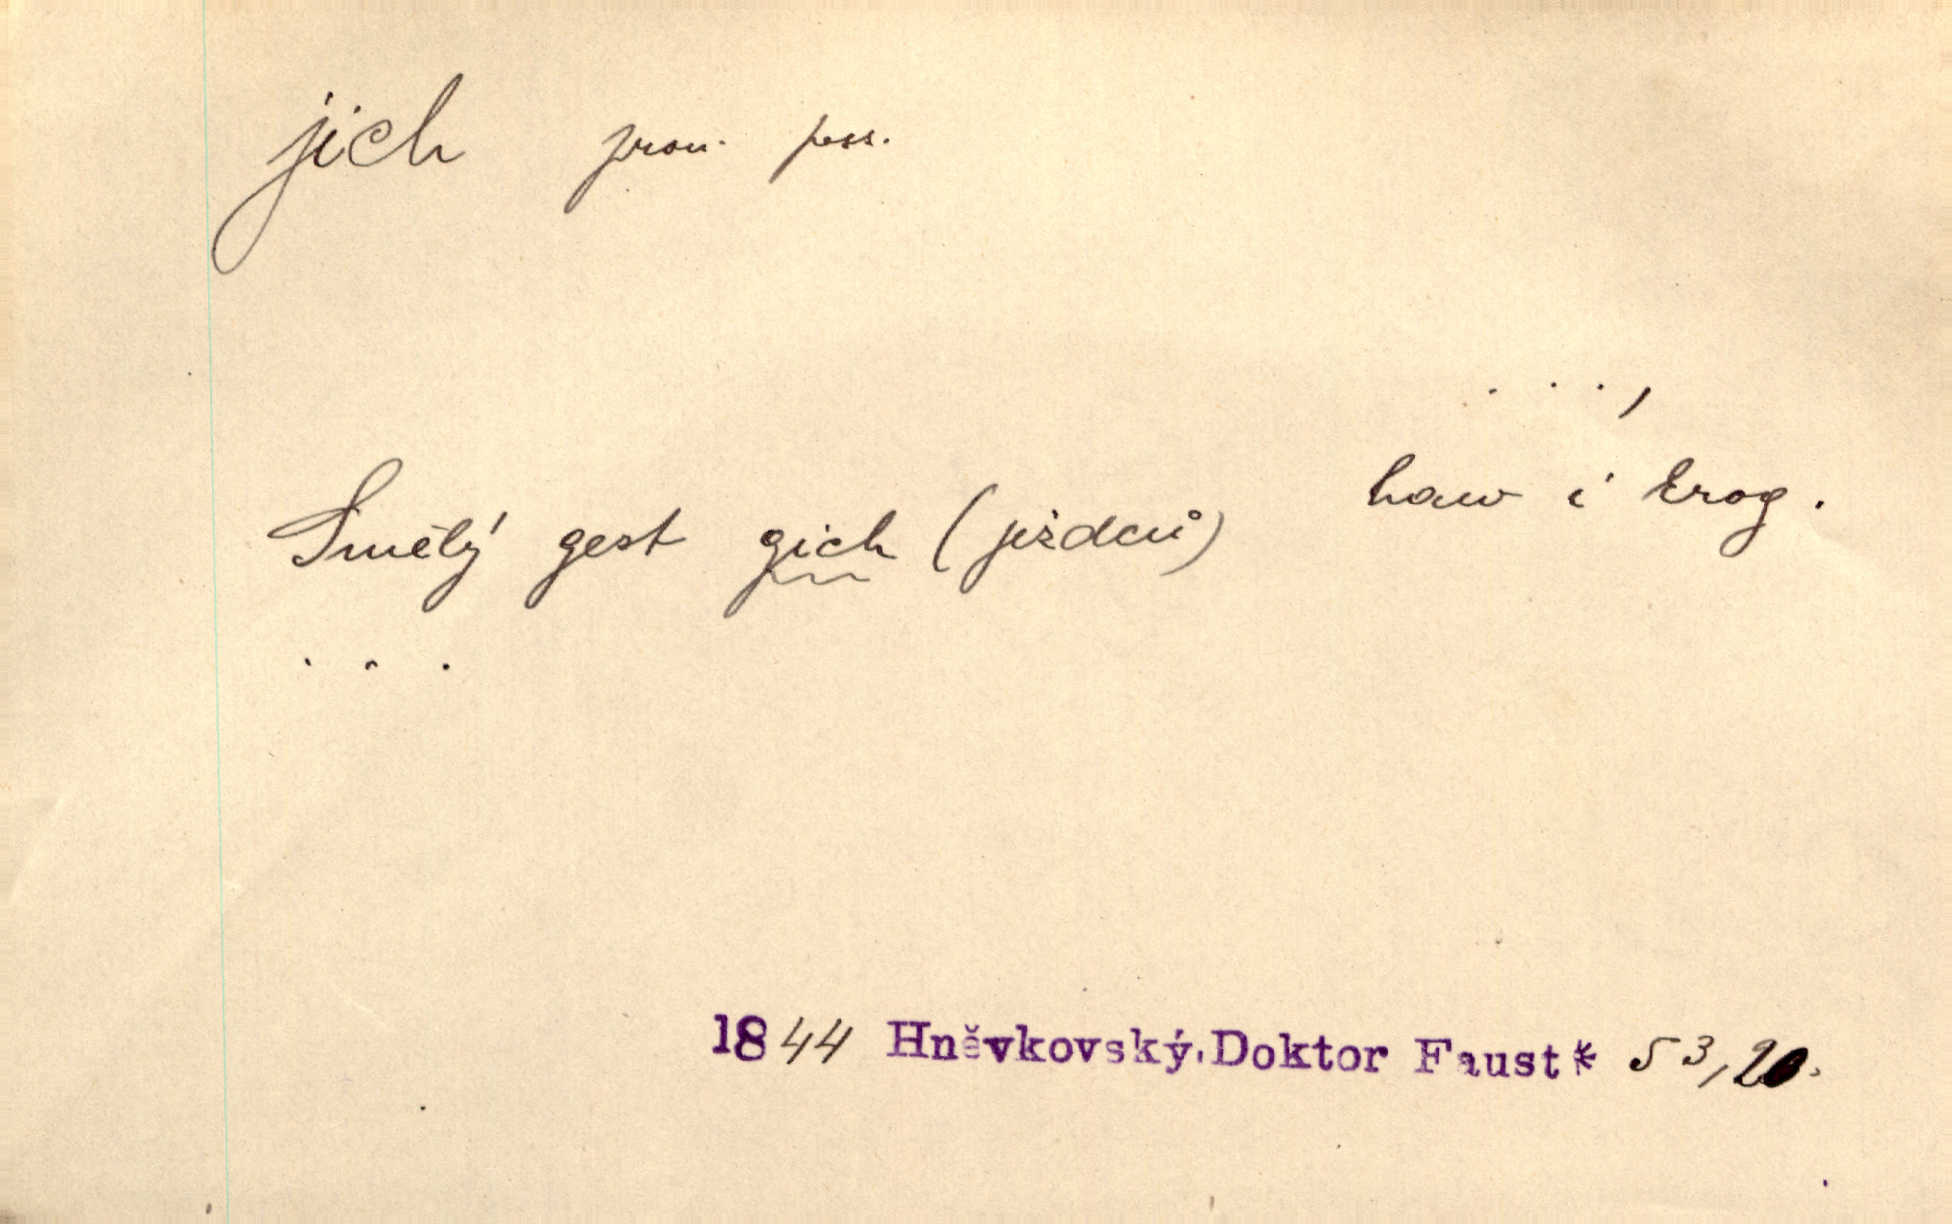 jich pron. poss.
. . . ,
Smělý gest gich (jezdců) haw i krog.
. . .
1844 Hněvkovský, Doktor Faust* 53,20.